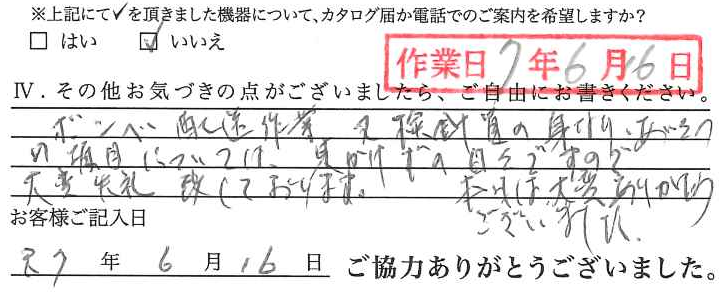 ※上記にて✓を頂きました機器について、カタログ届か電話でのご案内を希望しますか?
□ はい ☑ いいえ
作業日 7年6月16日
IV. その他お気づきの点がございましたら、ご自由にお書きください。
ボンベ配送作業 又 検針員の身なり、あいさつ
の項目については、見かけずの
大変失礼致しております。 本日は大変ありがとう
ございました。
お客様ご記入日
R7 年 6 月 16 日 ご協力ありがとうございました。